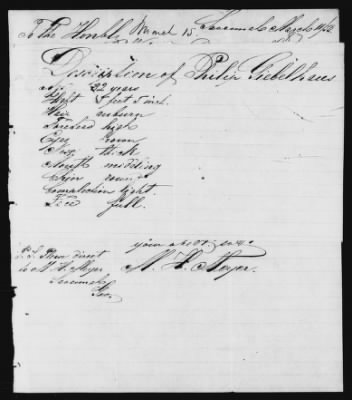 To the Honble
Savannah March
Description of Philip Giebelhaus
age 22 years
Hight 5 feet 5 inch.
Hair auburn
Forehead high
Eyes brown
Nose thick
Mouth middling
Chin round
Complection light.
Face full.
your obdt serv.
P. S. Please direct
to M. H. Meyer
Savannah
Geo.
M. H. Meyer.